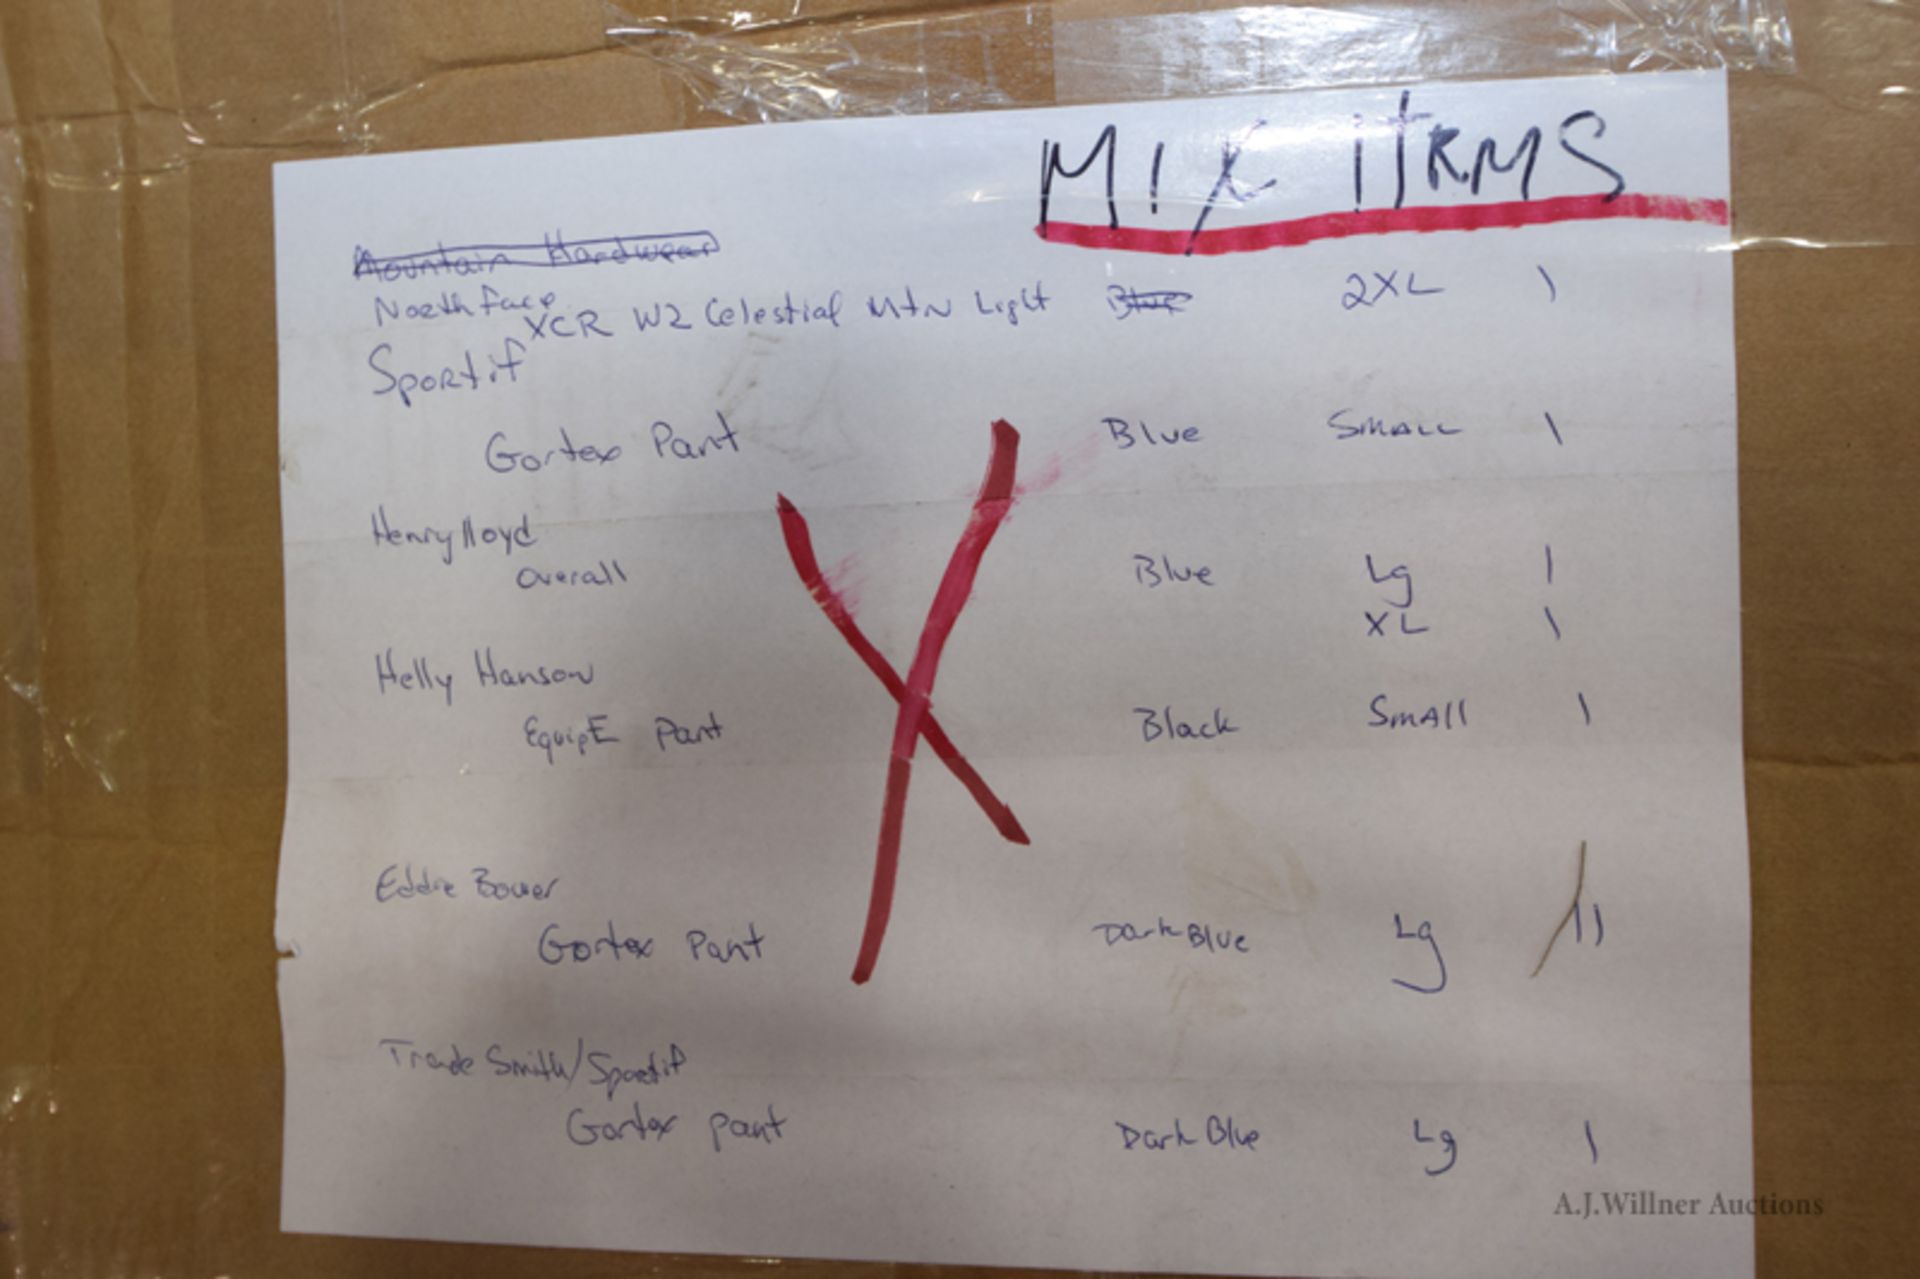 MIX ITEMS
Mountain Hardwear
North face
XCR W2 Celestial Mtn Light Blue 2XL 1
Sportif
Gortex Pant Blue Small 1
Henry lloyd
overall Blue Lg 1
XL 1
Helly Hanson
EquipE Pant Black Small 1
Eddie Bouer
Gortex Pant Dark Blue Lg 11
Trade Smith/Sportif
Gortex pant Dark Blue Lg 1
A.J.Willner Auctions